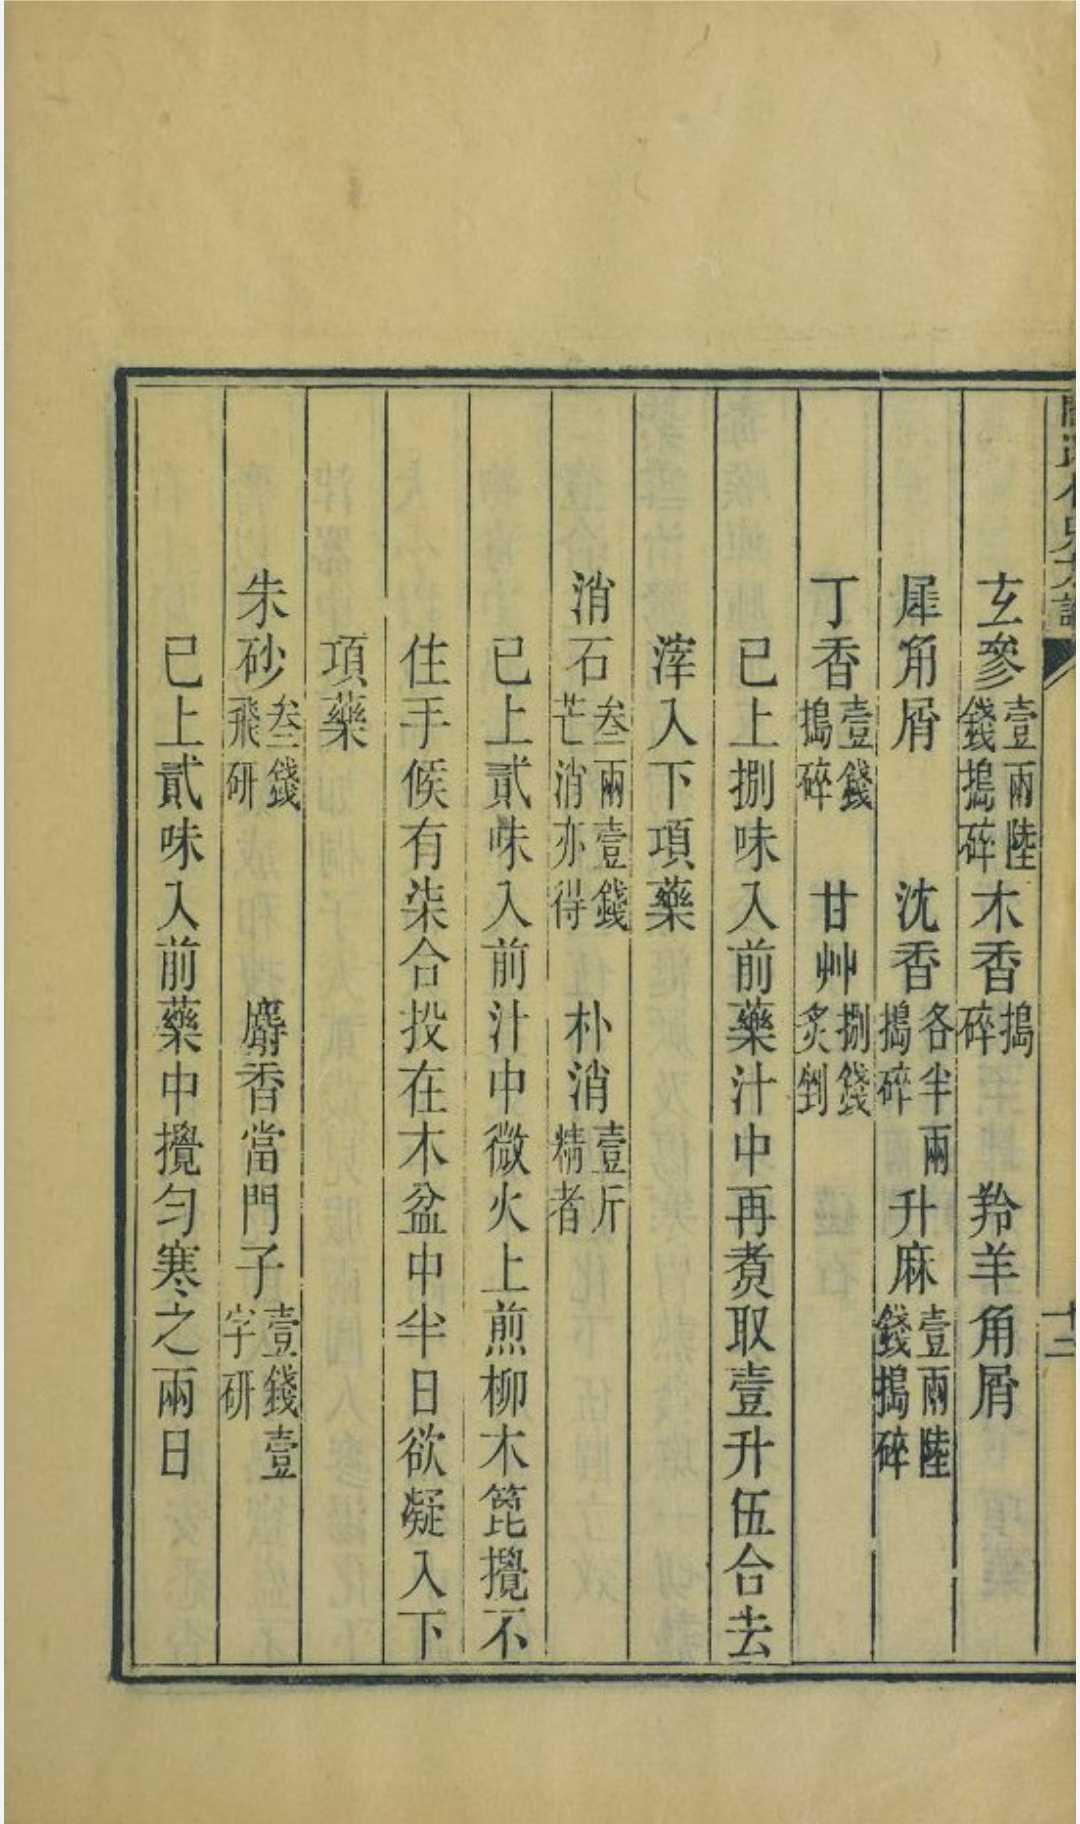 玄參壹兩陸錢搗碎木香搗碎 羚羊角屑
犀角屑 沈香各半兩搗碎升麻壹兩陸錢搗碎
丁香壹錢搗碎 甘艸捌錢炙剉
已上捌味入前藥汁中再煑取壹升伍合去
滓入下項藥
消石叁兩壹錢芒消亦得 朴消壹斤精者
已上貳味入前汁中微火上煎柳木箆攪不
住手候有柒合投在木盆中半日欲凝入下
項藥
朱砂叁錢飛研 麝香當門子壹錢壹字研
已上貳味入前藥中攪勻寒之兩日
十二